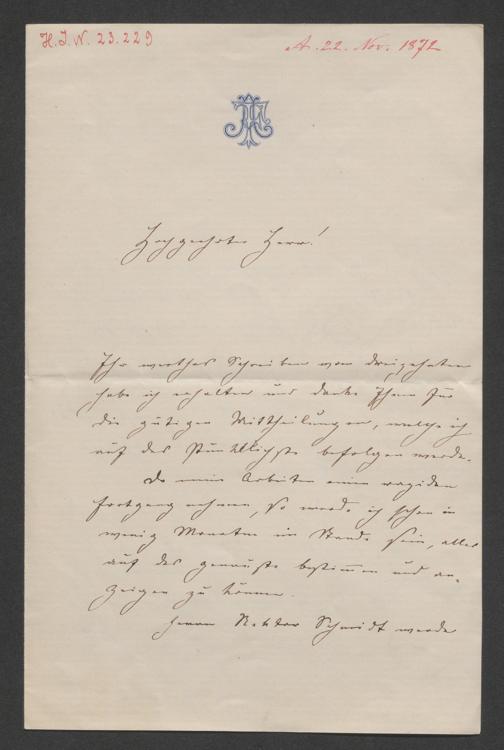 H.I.N. 23.229
A. 22. Nov. 1872
Hochgeehrter Herr!
Ihr werthes Schreiben vom dreizehnten
habe ich erhalten und danke Ihnen für
die gütigen Mittheilungen, welche ich
auf das Pünktlichste befolgen werde.
Da meine Arbeiten einen rapiden
Fortgang nehmen, so werde ich schon in
wenig Monaten im Stande sein, alles
auf das genauste bestimmen und an-
zeigen zu können.
Herrn Rektor Schmidt werde